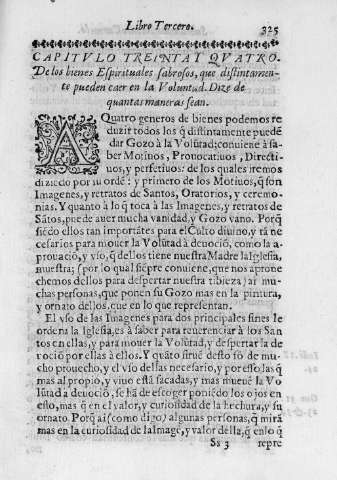 Libro Tercero. 325
CAPITVLO TREINTA Y QVATRO.
De los bienes Espirituales sabrosos, que distintamen-
te pueden caer en la Voluntad. Dize de
quantas maneras sean.
A Quatro generos de bienes podemos re
duzir todos los q̃ distintamente puedẽ
dar Gozo à la Volũtad; conuiene à sa
ber Motiuos, Prouocatiuos, Directi-
uos, y perfetiuos: de los quales iremos
diziẽdo por su ordẽ: y primero de los Motiuos, q̃ son
Imagenes, y retratos de Santos, Oratorios, y ceremo-
nias. Y quanto à lo q̃ toca à las Imagenes, y retratos de
Sãtos, puede auer mucha vanidad, y Gozo vano. Porq̃
siẽdo ellos tan importãtes para el Culto diuino, y tã ne
cesarios para mouer la Volũtad à deuociõ, como la a-
prouaciõ, y vso, q̃ dellos tiene nuestra Madre la Iglesia,
muestra; (por lo qual siẽpre conuiene, que nos aproue
chemos dellos para despertar nuestra tibieza) ai mu
chas personas, que ponen su Gozo mas en la pintura,
y ornato dellos, que en lo que representan.
El vso de las Imagenes para dos principales fines le
ordena la Iglesia, es à saber para reuerenciar à los San
tos en ellas, y para mouer la Volũtad, y despertar la de
uociõ por ellas à ellos. Y quãto siruẽ desto sõ de mu-
cho prouecho, y el vso dellas necesario, y por esso las q̃
mas al propio, y viuo estã sacadas, y mas mueuẽ la Vo
lũtad à deuociõ, se hã de escoger poniẽdo los ojos en
esto, mas q̃ en el valor, y curiosidad de la hechura, y su
ornato. Porq̃ ai (como digo) algunas personas, q̃ mirã
mas en la curiosidad de la Imagẽ, y valor della, q̃ en lo q̃
Ss 3 repre